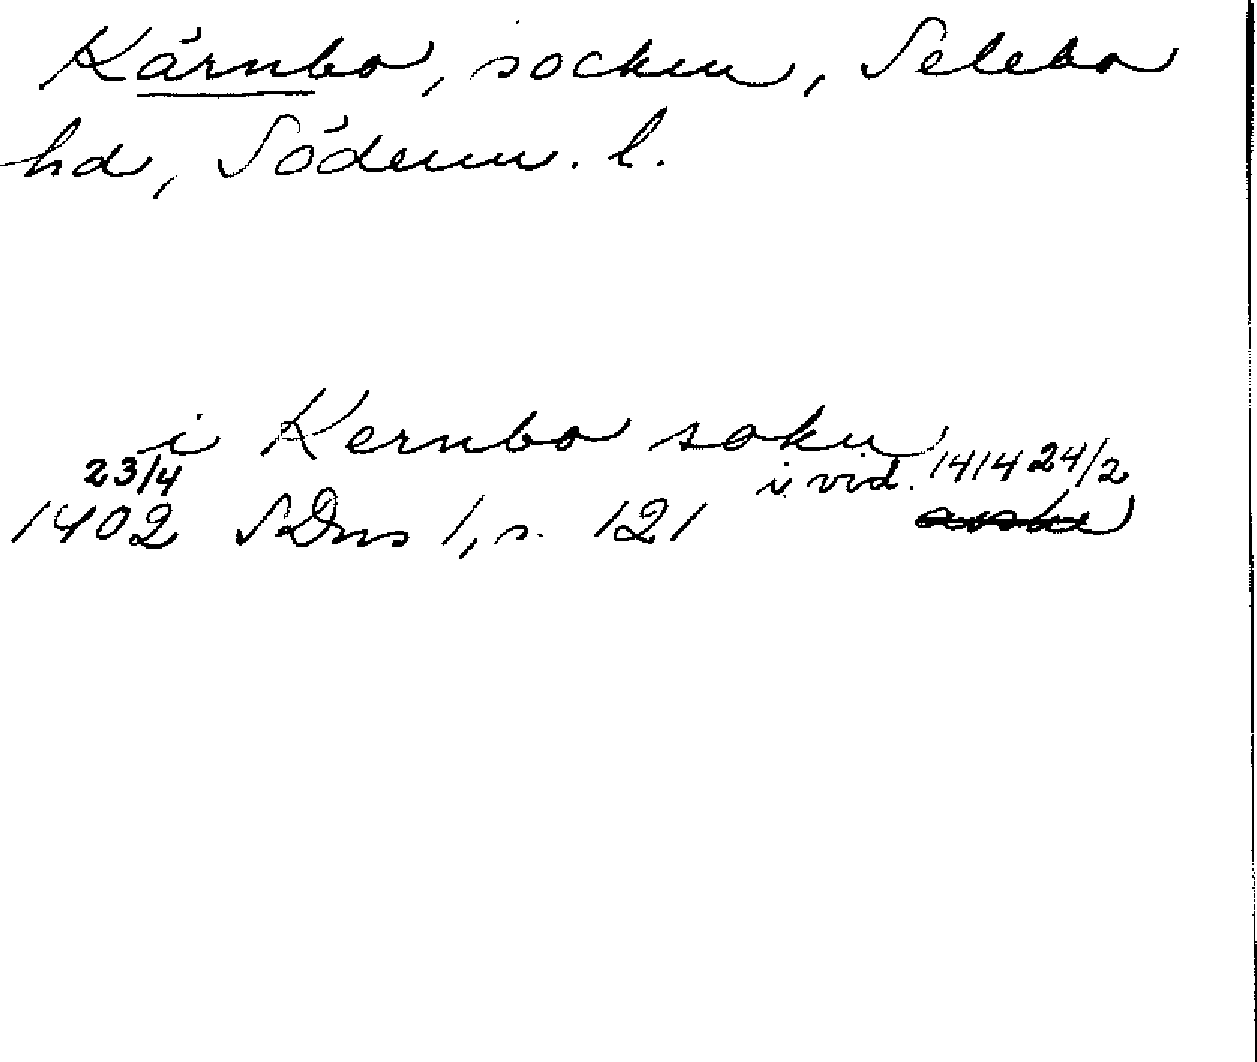 Kärnbo, socken, Selebo
hd, Söderm. l.
i Kernbo sokn
23/4 i vid. 1414 24/2
1402 SDns 1, s. 121